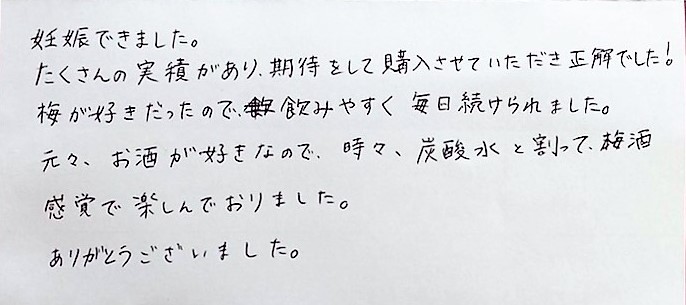 妊娠できました。
たくさんの実積があり、期待をして購入させていただき正解でした!
梅が好きだったので、飲みやすく毎日続けられました。
元々、お酒が好きなので、時々、炭酸水と割って、梅酒
感覚で楽しんでおりました。
ありがとうございました。